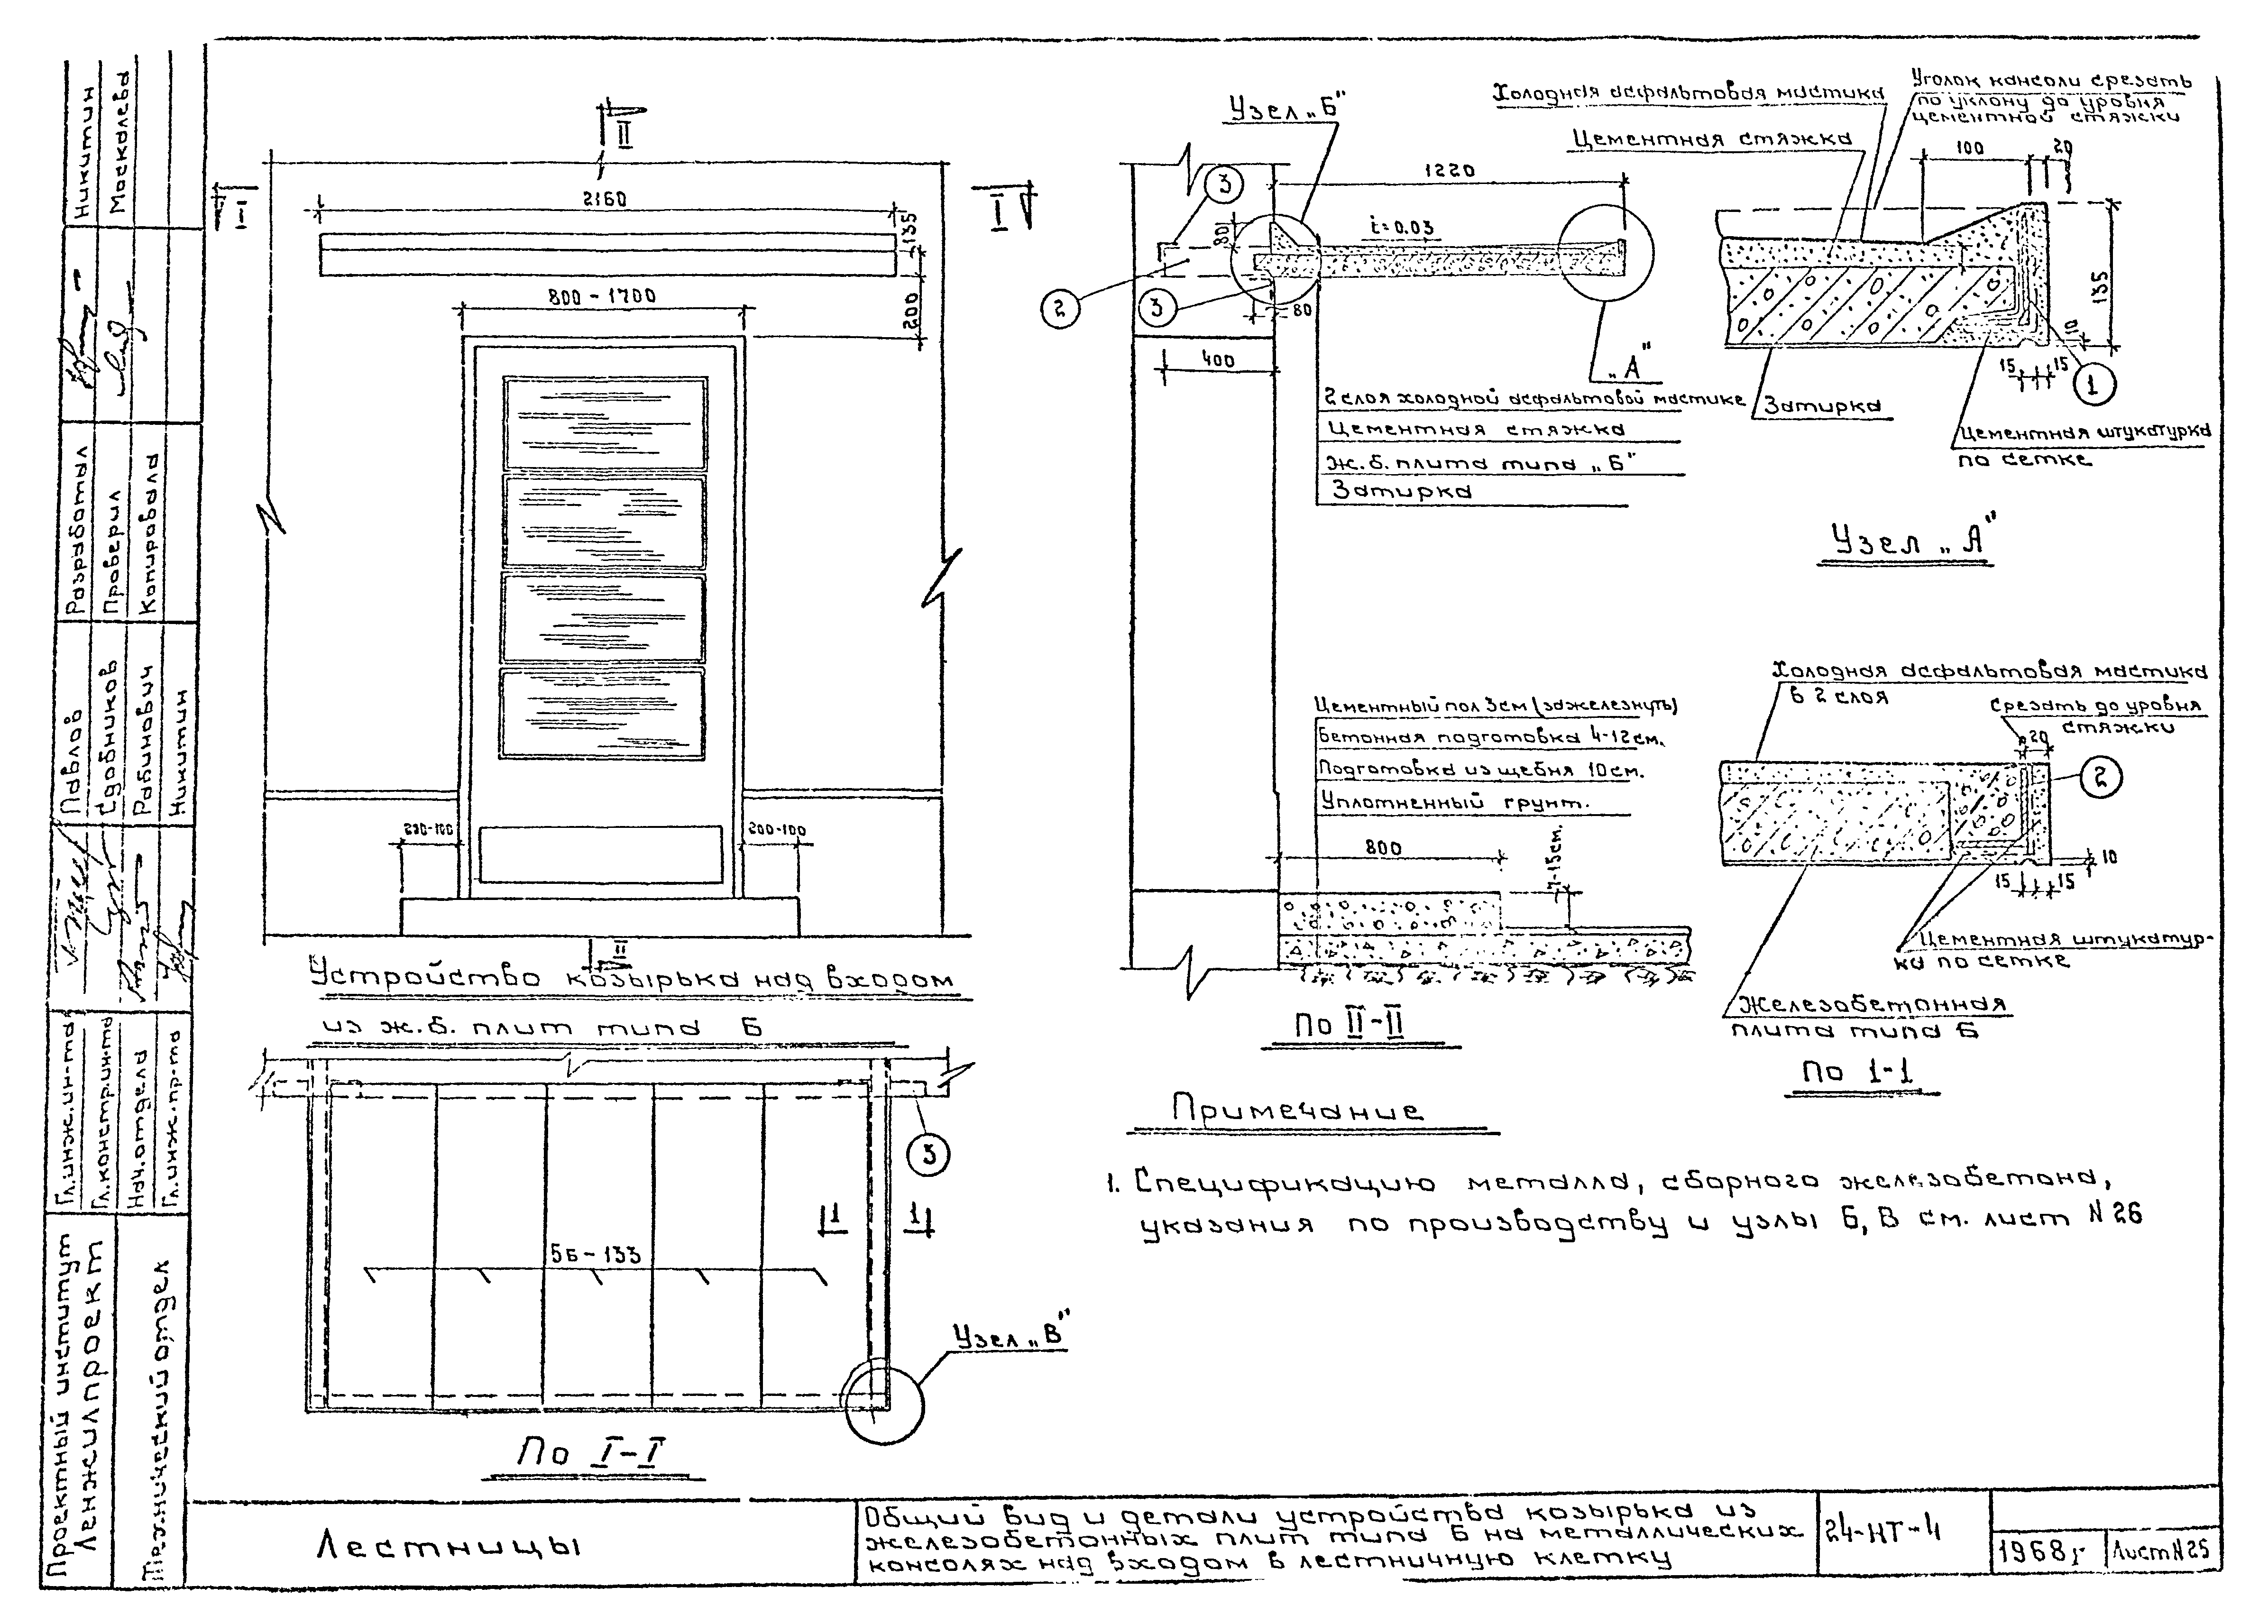 Никитин
Москалева
Разработал
Проверил
Копировала
Павлов
Сдобников
Рабинович
Никитин
Гл.инж.ин-та
Гл.констр.ин-та
Нач.отдела
Гл.инж.пр-та
Проектный институт
Ленжилпроект
Технический отдел
II
I-I
I
2160
135
200
800-1700
200-100
200-100
II
Устройство козырька над входом
из ж.б. плит типа Б
3
1
1
5Б-133
Узел „В"
По I-I
Узел „Б"
3
1220
80
i=0.03
2
3
80
400
„А"
2 слоя холодной асфальтовой мастике
Цементная стяжка
Ж.б. плита типа „Б"
Затирка
Цементный пол 3см (зажелезнуть)
Бетонная подготовка 4-12см.
Подготовка из щебня 10см.
Уплотненный грунт.
800
7-15см.
По II-II
Холодная асфальтовая мастика
Цементная стяжка
Уголок консоли срезать
по уклону до уровня
цементной стяжки
100
20
135
10
15
15
1
Затирка
Цементная штукатурка
по сетке
Узел „А"
Холодная асфальтовая мастика
в 2 слоя
Срезать до уровня
стяжки
20
2
10
15
15
Цементная штукатур-
ка по сетке
Железобетонная
плита типа Б
По 1-1
Примечание
1. Спецификацию металла, сборного железобетона,
указания по производству и узлы Б, В см. лист N 26
Лестницы
Общий вид и детали устройства козырька из
железобетонных плит типа Б на металлических
консолях над входом в лестничную клетку
24-НТ-4
1968г
Лист N25